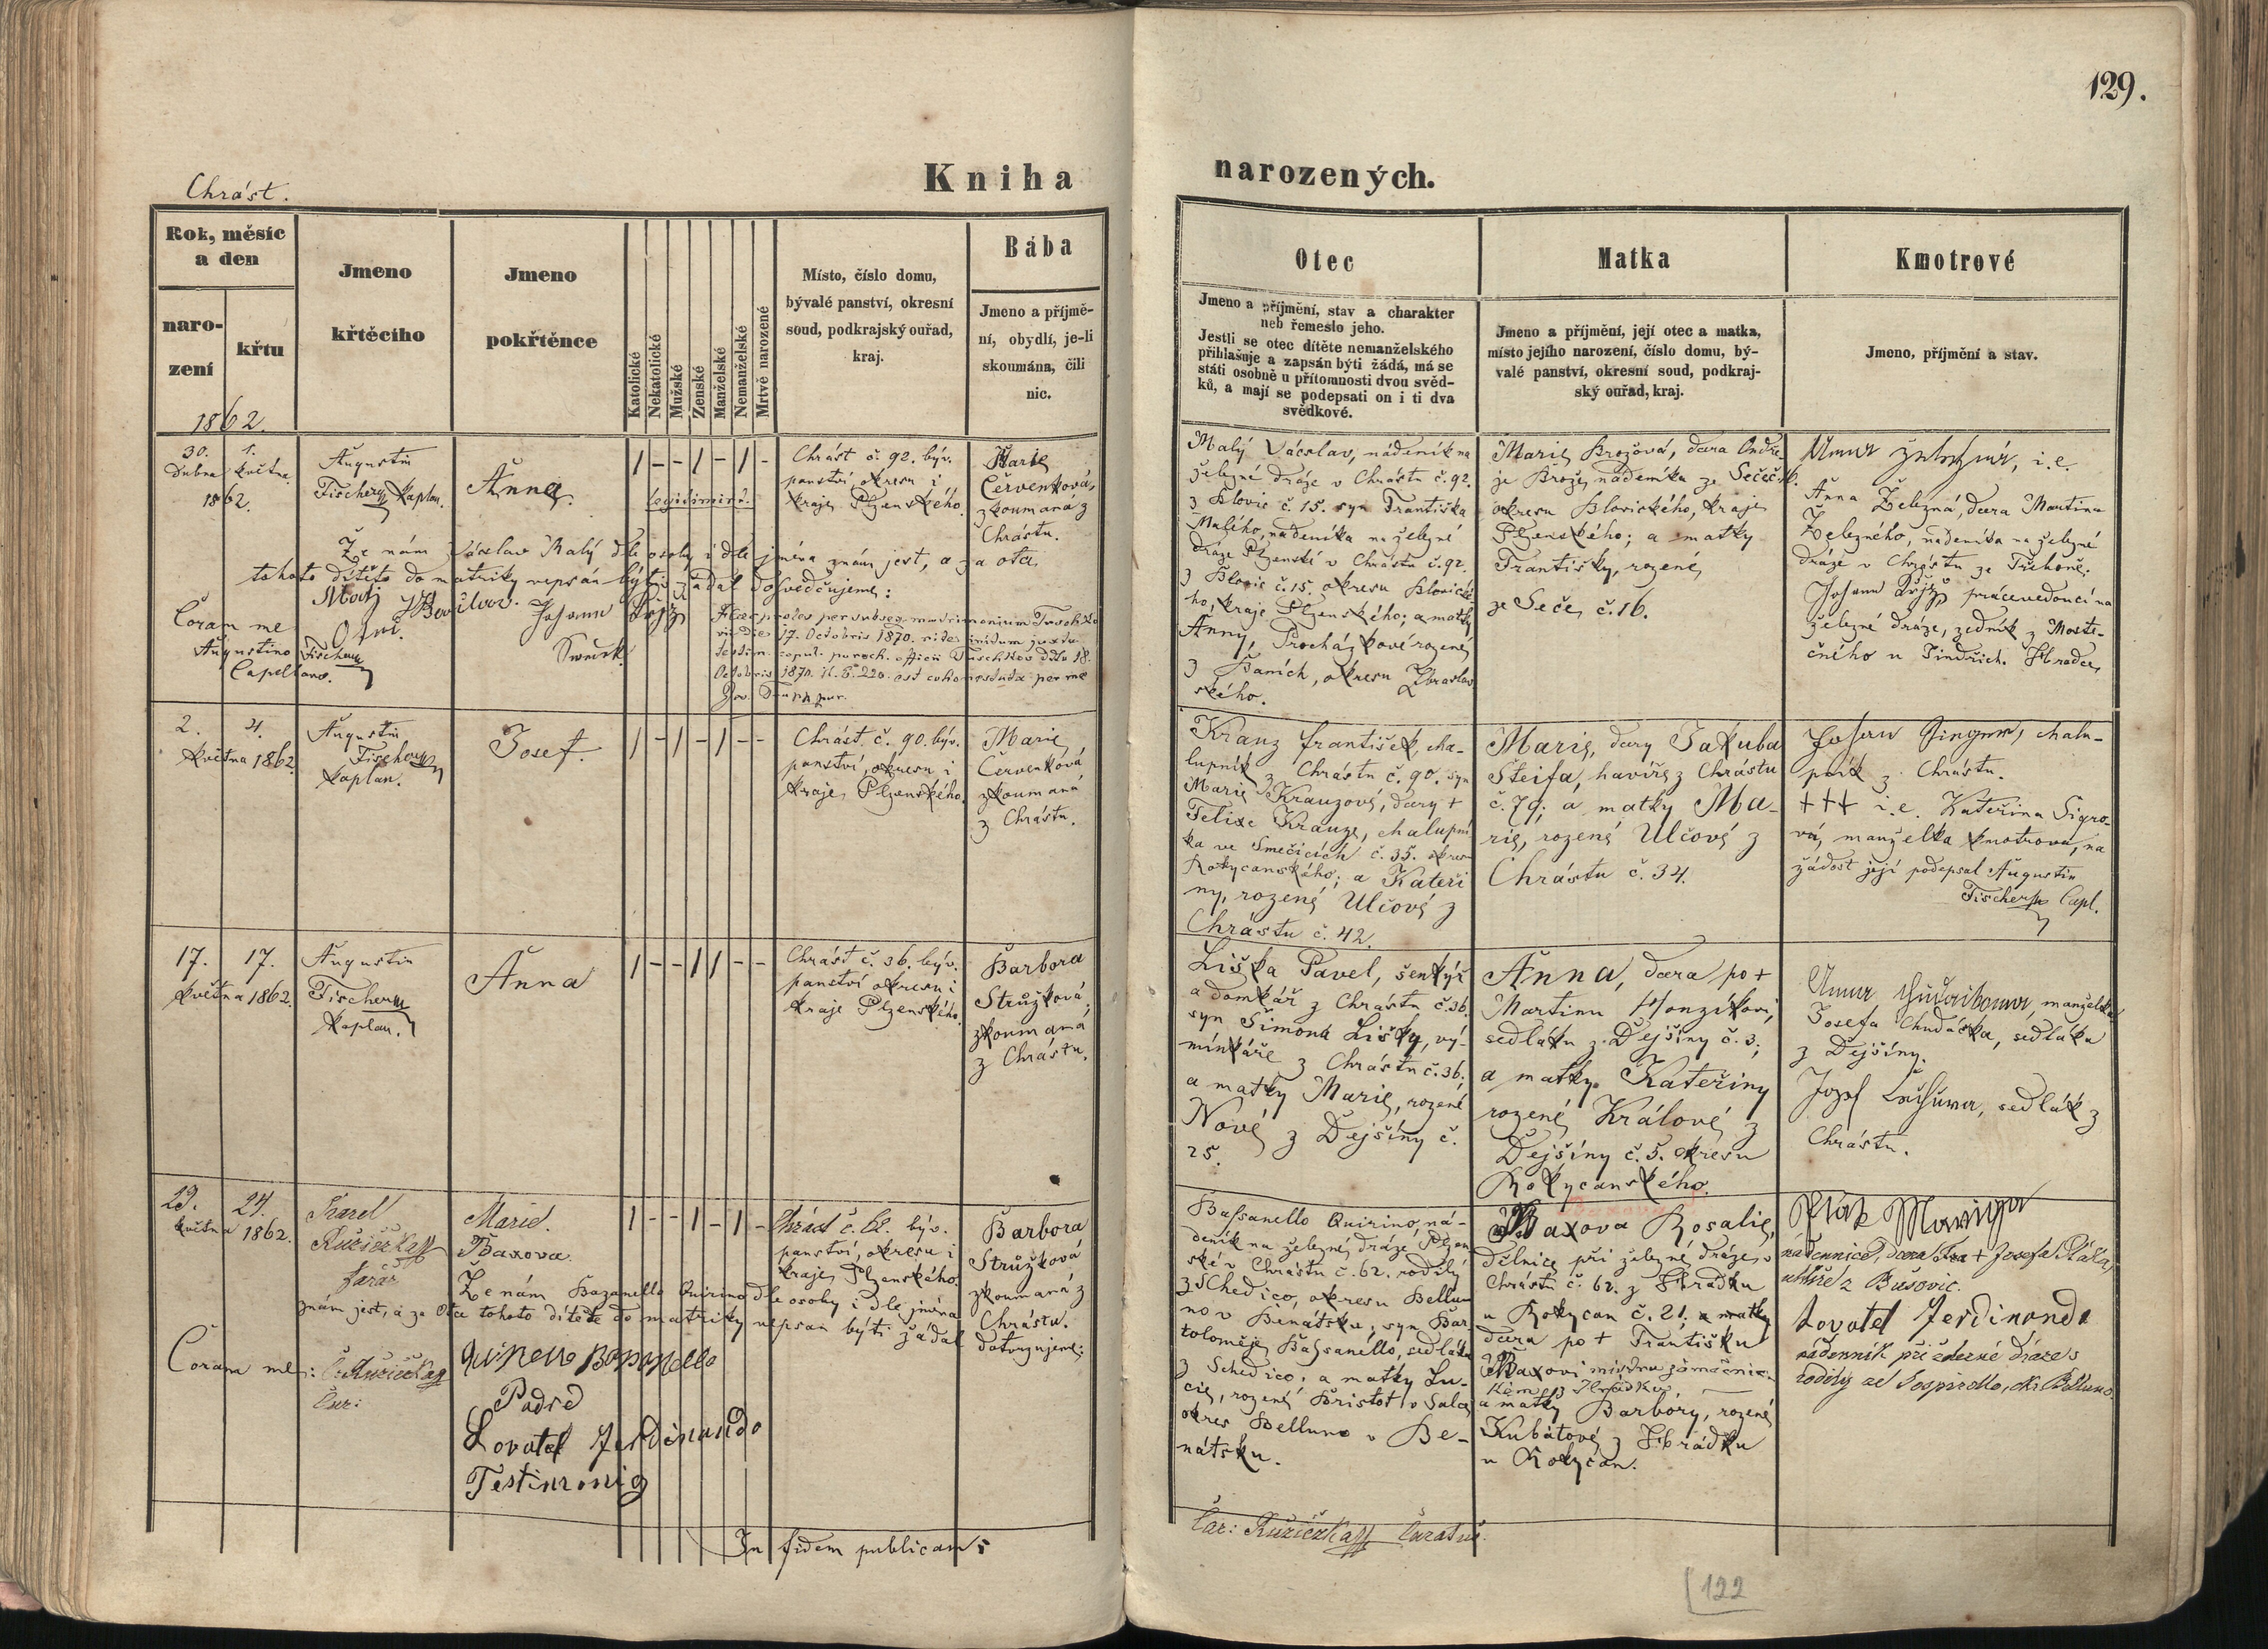 129.
Chrást.
Kniha narozených.
Rok, měsíc
a den
naro-
zení
křtu
1862.
Jmeno
křtěcího
Jmeno
pokřtěnce
Katolické
Nekatolické
Mužské
Ženské
Manželské
Nemanželské
Mrtvě narozené
Místo, číslo domu,
bývalé panství, okresní
soud, podkrajský ouřad,
kraj.
Bába
Jmeno a příjmě-
ní, obydlí, je-li
skoumána, čili
nic.
Otec
Jmeno a příjmění, stav a charakter
neb řemeslo jeho.
Jestli se otec dítěte nemanželského
přihlašuje a zapsán býti žádá, má se
státi osobně u přítomnosti dvou svěd-
ků, a mají se podepsati on i ti dva
svědkové.
Matka
Jmeno a příjmění, její otec a matka,
místo jejího narození, číslo domu, bý-
valé panství, okresní soud, podkraj-
ský ouřad, kraj.
Kmotrové
Jmeno, příjmění a stav.
30.
Dubna
1.
května
1862.
Augustin
Fischer kaplan.
Anna.
legitimirt.
Chrást č. 92. býv.
panství, okresu i
kraje Plzenského.
Marie
Červenková,
zkoumaná z
Chrástu.
Malý Václav, nádeník na
železné dráze v Chrástu č. 92.
z Blovic č. 15. syn Františka
Malého, nádeníka na železné
dráze Plzenské v Chrástu č. 92.
z Blovic č. 15. okresu Blovické-
ho, kraje Plzenského; a matky
Anny, Procházkové rozené
z Baních, okresu Zbraslav-
ského.
Marie Brožová, dcera Ondře-
je Brože, nádeníka ze Seče č. 16.
okresu Blovického, kraje
Plzenského; a matky
Františky, rozené
ze Seče, č. 16.
Anna Železná, i.e.
Anna Železná, dcera Martina
Železného, nádeníka na železné
dráze v Chrástu ze
Johann práce vedoucí na
železné dráze, zedník z Moste-
čného u Jindřich. Hradce
Že nám Václav Malý dle osoby i dle jména znám jest, a za otce
tohoto dítěte do matriky vepsán býti žádal dosvědčujeme:
Coram me
Augustino Fischer
Capellano.
Johann
Svědek.
Haec proles per subseq. matrimonium
die 17. Octobris 1870. rite initum juxta
testim. copul. paroch. officii dtto 18.
Octobris 1870. N. E. 220. est per me
2.
4.
května 1862.
Augustin
Fischer
kaplan.
Josef.
Chrást č. 90. býv.
panství, okresu i
kraje Plzenského.
Marie
Červenková
zkoumaná
z Chrástu.
Kranz František, cha-
lupník z Chrástu č. 90. syn
Marie Kranzové, dcery +
Felixe Kranze, chalupní-
ka ve Smečicích č. 35. okresu
Rokycanského; a Kateři-
ny, rozené Ulčové z
Chrástu č. 42.
Marie, dcery Jakuba
Steifa, havíře z Chrástu
č. 79; a matky Ma-
rie, rozené Ulčové z
Chrástu č. 34.
Johann chalu-
pník z Chrástu.
+++ i.e. Kateřina Sigro-
vá, manželka kmotrova, na
žádost její podepsal Augustin
Fischer Capl.
17.
17.
května 1862.
Augustin
Fischer
kaplan.
Anna
Chrást č. 36. býv.
panství okresu i
kraje Plzenského.
Barbora
Strůžková,
zkoumaná
z Chrástu.
Liška Pavel, šenkýř
a domkář z Chrástu č. 36.
syn Šimona Lišky, vý-
minkáře z Chrástu č. 36.;
a matky Marie, rozené
Nové z Dejšíny č.
25.
Anna, dcera po +
Martinu Honzíkovi,
sedláku z Dejšíny č. 3;
a matky Kateřiny
rozené Králové z
Dejšíny č. 5. okresu
Rokycanského.
Anna manželka
Josefa Chudáčka, sedláka
z Dejšíny.
Josef sedlák z
Chrástu.
23.
24.
května 1862.
Karel
Růžička
farář
Marie.
Baxova
Chrást č. 62. býv.
panství, okresu i
kraje Plzenského.
Barbora
Strůžková
zkoumaná z
Chrástu.
Bassanello Quirino, ná-
deník na železné dráze Plzen-
ské v Chrástu č. 62. rodilý
z Schedico, okresu Bellu-
no v Benátsku; syn Bar-
toloměje Bassanello, sedláka
z Schedico; a matky Lu-
cie, rozené Bristot v Salce
okres Belluno v Be-
nátsku.
Baxova Rosalie,
dělnice při železné dráze v
Chrástu č. 62. z Hrádku
u Rokycan č. 21; a matky
dcera po + Františku
Baxovi mistru zámečnic-
kém z Hrádku,
a matky Barbory, rozené
Kubátové z Hrádku
u Rokycan.
Pták Mariya
nádennice, dcera + Josefa Ptáka,
z Bušovic.
Lovatel Ferdinando
nádenník při železné dráze
rodilý ze Sospirollo, okr. Belluno
Že nám Bazanello Quirino dle osoby i dle jména
znám jest, a za Otce tohoto dítěte do matriky vepsan býti žádal dotvrzujeme:
Coram me: C. Růžička
Cur:
Quireno Bassanello
Padre
Lovatel Ferdinando
Testimonio
In fidem publicam:
Car: Růžička Curatus.
122